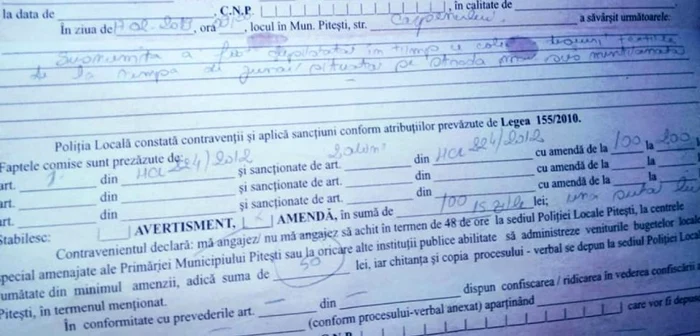 la data de , C.N.P. , în calitate de
În ziua de , ora , locul în Mun. Piteşti, str. a săvârşit următoarele:
Susnumita a fost depistată în timp ce
de la rampa de gunoi situată pe strada mai sus menţionată
Poliţia Locală constată contravenţii şi aplică sancţiuni conform atribuţiilor prevăzute de Legea 155/2010.
Faptele comise sunt prezăzute de:
art. din HCL 224/2012 şi sancţionate de art. din HCL 224/2012 cu amendă de la 100 la 200
art. din şi sancţionate de art. din cu amendă de la la
art. din şi sancţionate de art. din cu amendă de la la
Stabilesc: AVERTISMENT, AMENDĂ, în sumă de 100 lei; una sută lei
Contravenientul declară: mă angajez/ nu mă angajez să achit în termen de 48 de ore la sediul Poliţiei Locale Piteşti, la centrele
special amenajate ale Primăriei Municipiului Piteşti sau la oricare alte instituţii publice abilitate să administreze veniturile bugetelor locale
jumătate din minimul amenzii, adică suma de 50 lei, iar chitanţa şi copia procesului - verbal se depun la sediul Poliţiei Locale
Piteşti, în termenul menţionat.
În conformitate cu prevederile art. din dispun confiscarea / ridicarea în vederea confiscării
(conform procesului-verbal anexat) aparţinând
care vor fi depuse